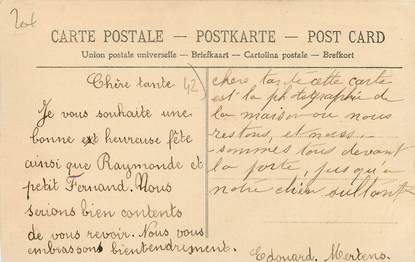 CARTE POSTALE — POSTKARTE — POST CARD
Union postale universelle — Briefkaart — Cartolina postale — Brefkort
Chère tante
42
Je vous souhaite une
bonne et heureuse fête
ainsi que Raymonde et
petit Fernand. Nous
serions bien contents
de vous revoir. Nous vous
embrassons bien tendrement.
chère tante cette carte
est la photographie de
la maison ou nous
restons, et nous
sommes tous devant
la porte, jusqu'a
notre chien
Edouard. Mertens.